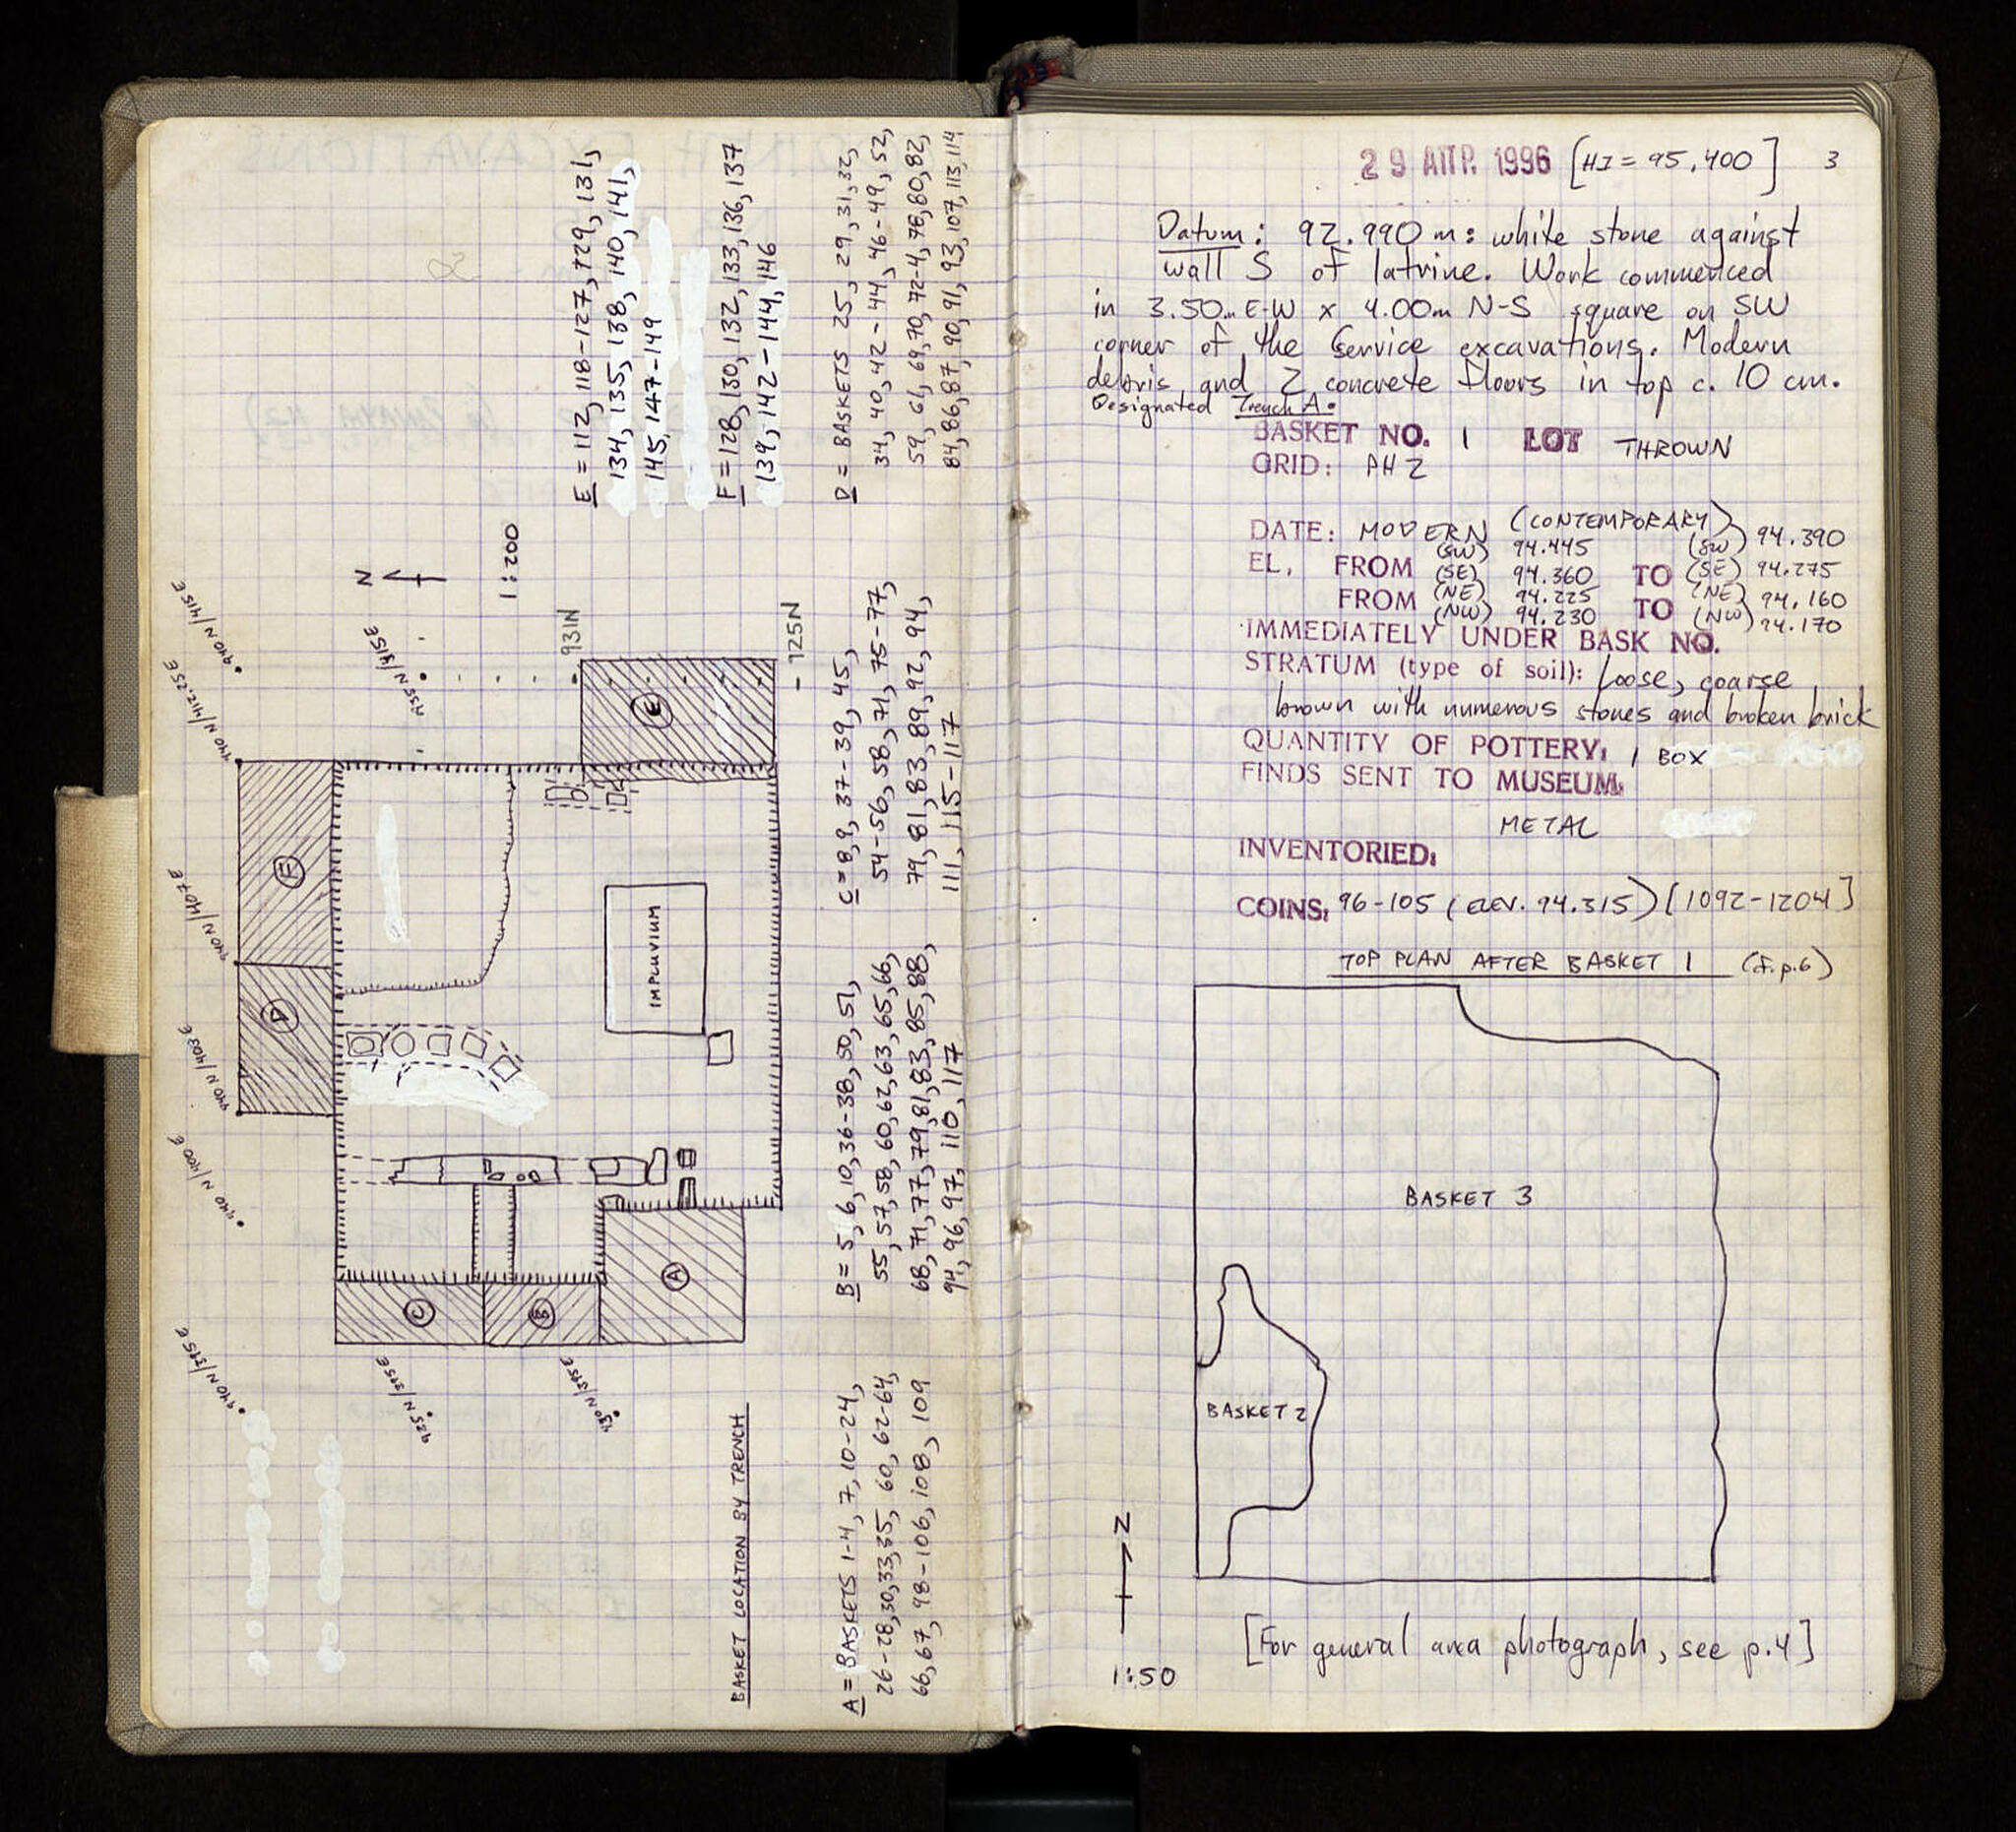 E = 112, 118-127, 129, 131,
134, 135, 138, 140, 141,
145, 147-149
F = 128, 130, 132, 133, 136, 137
139, 142-144, 146
D = BASKETS 25, 29, 31, 32,
34, 40, 42-44, 46-49, 52,
59, 61, 69, 70, 72-4, 78, 80, 82,
84, 86, 87, 90, 91, 93, 107, 113, 114
C = 8, 9, 37-39, 45,
54-56, 58, 71, 75-77,
79, 81, 83, 89, 92, 94,
111, 115-117
B = 5, 6, 10, 36-38, 50, 51,
55, 57, 58, 60, 62, 63, 65, 66,
68, 71, 77, 79, 81, 83, 85, 88,
94, 96, 97, 110, 117
A = BASKETS 1-4, 7, 10-24,
26-28, 30, 33, 35, 60, 62-64,
66, 67, 98-106, 108, 109
BASKET LOCATION BY TRENCH
N
1:200
940N/415E
940N/412.25E
935N/415E
931N
925N
940N/407E
940N/403E
940N/400E
940N/395E
935N/395E
930N/395E
F
D
E
C
B
A
IMPLUVIUM
29 ΑΠΡ. 1996 [HI = 95,400] 3
Datum: 92.990 m: white stone against
wall S of latrine. Work commenced
in 3.50m E-W x 4.00m N-S square on SW
corner of the Service excavations. Modern
debris and 2 concrete floors in top c. 10 cm.
Designated Trench A.
BASKET NO. 1 LOT THROWN
GRID: PH 2
DATE: MODERN (CONTEMPORARY)
EL. FROM (SW) 94.445 TO (SW) 94.390
(SE) 94.360 (SE) 94.275
FROM (NE) 94.225 TO (NE) 94.160
(NW) 94.230 (NW) 94.170
IMMEDIATELY UNDER BASK NO.
STRATUM (type of soil): Loose, coarse
brown with numerous stones and broken brick
QUANTITY OF POTTERY: 1 BOX
FINDS SENT TO MUSEUM:
METAL
INVENTORIED:
COINS: 96-105 (ELEV. 94.315) [1092-1204]
TOP PLAN AFTER BASKET 1 (cf. p.6)
BASKET 3
BASKET 2
N
1:50
[For general area photograph, see p.4]